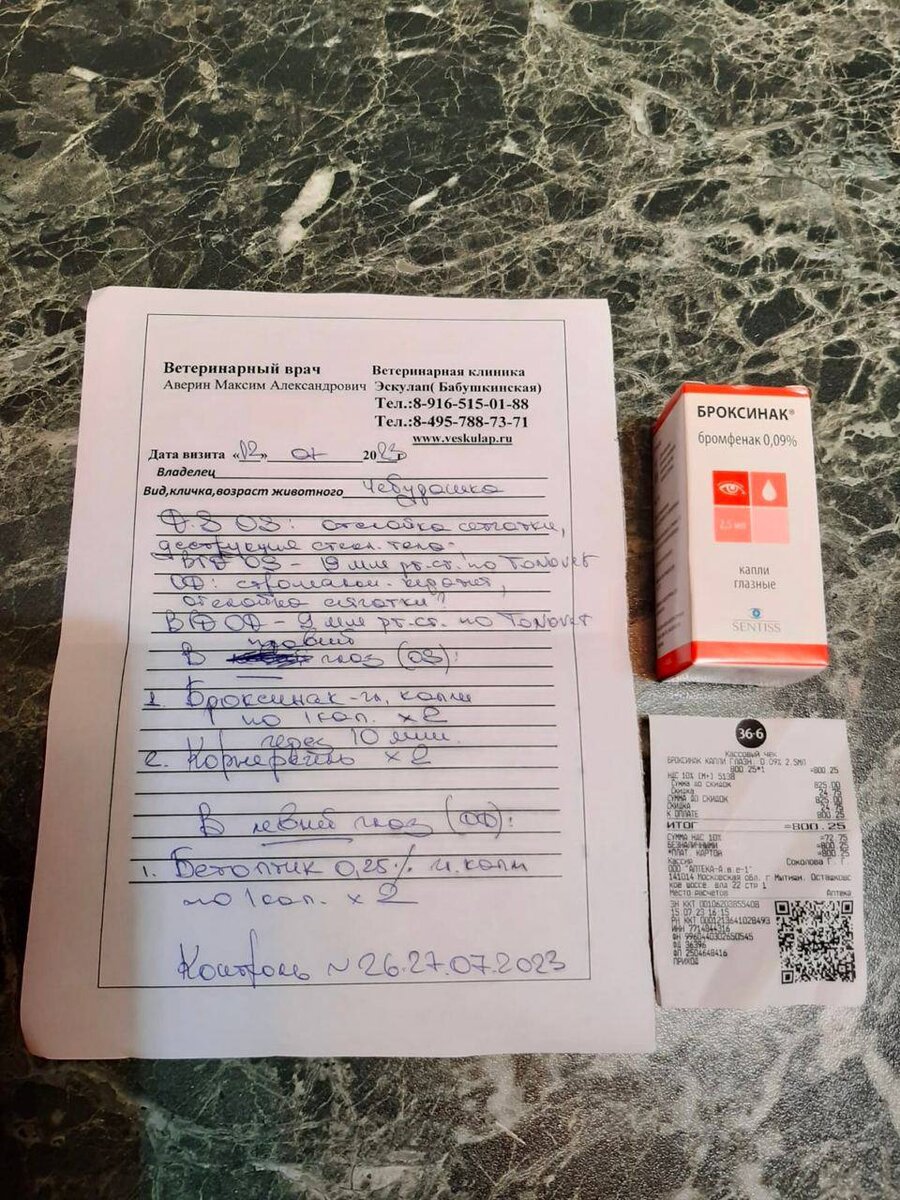 Ветеринарный врач
Аверин Максим Александрович
Ветеринарная клиника
Эскулап( Бабушкинская)
Тел.:8-916-515-01-88
Тел.:8-495-788-73-71
www.veskulap.ru
Дата визита «12» 07 2023
Владелец
Вид,кличка,возраст животного Чебурашка
D.S OS: отслойка сетчатки,
деструкция стекл. тела.
ВГД OS - 19 мм рт.ст. по Tonovet
OD: стромальн. кератит,
отслойка сетчатки?
ВГД OD - 9 мм рт.ст. по Tonovet
правый
В глаз (OS):
1. Броксинак - гл. капли
по 1 кап. x 2
через 10 мин.
2. Корнерегель x 2
В левый глаз (OD):
1. Бетоптик 0,25% гл. капли
по 1 кап. x 2
Контроль ~ 26.27.07.2023
БРОКСИНАК®
бромфенак 0,09%
2,5 мл
капли
глазные
SENTISS
36·6
Кассовый чек
БРОКСИНАК КАПЛИ ГЛАЗН. 0.09% 2.5МЛ
800.25*1 =800.25
НДС 10% [М+] 5138
Сумма до скидок 825.00
Скидка
СУММА ДО СКИДОК
СКИДКА
К ОПЛАТЕ 800.25
ИТОГ =800.25
СУММА НДС 10% =72.75
БЕЗНАЛИЧНЫМИ =800.25
*ПЛАТ. КАРТОЙ =800.25
Кассир Соколова Г. Г
ООО "АПТЕКА-А.в.е-1"
141014 Московская обл. г Мытищи. Осташковс
кое шоссе. вла 22 стр 1
Место расчетов Аптека
ЗН ККТ 00106203855408
15.07.23 16:15
РН ККТ 0001213641028493
ИНН 7714844316
ФН 9960440302650545
ФД 36396
ФП 2504648416
ПРИХОД